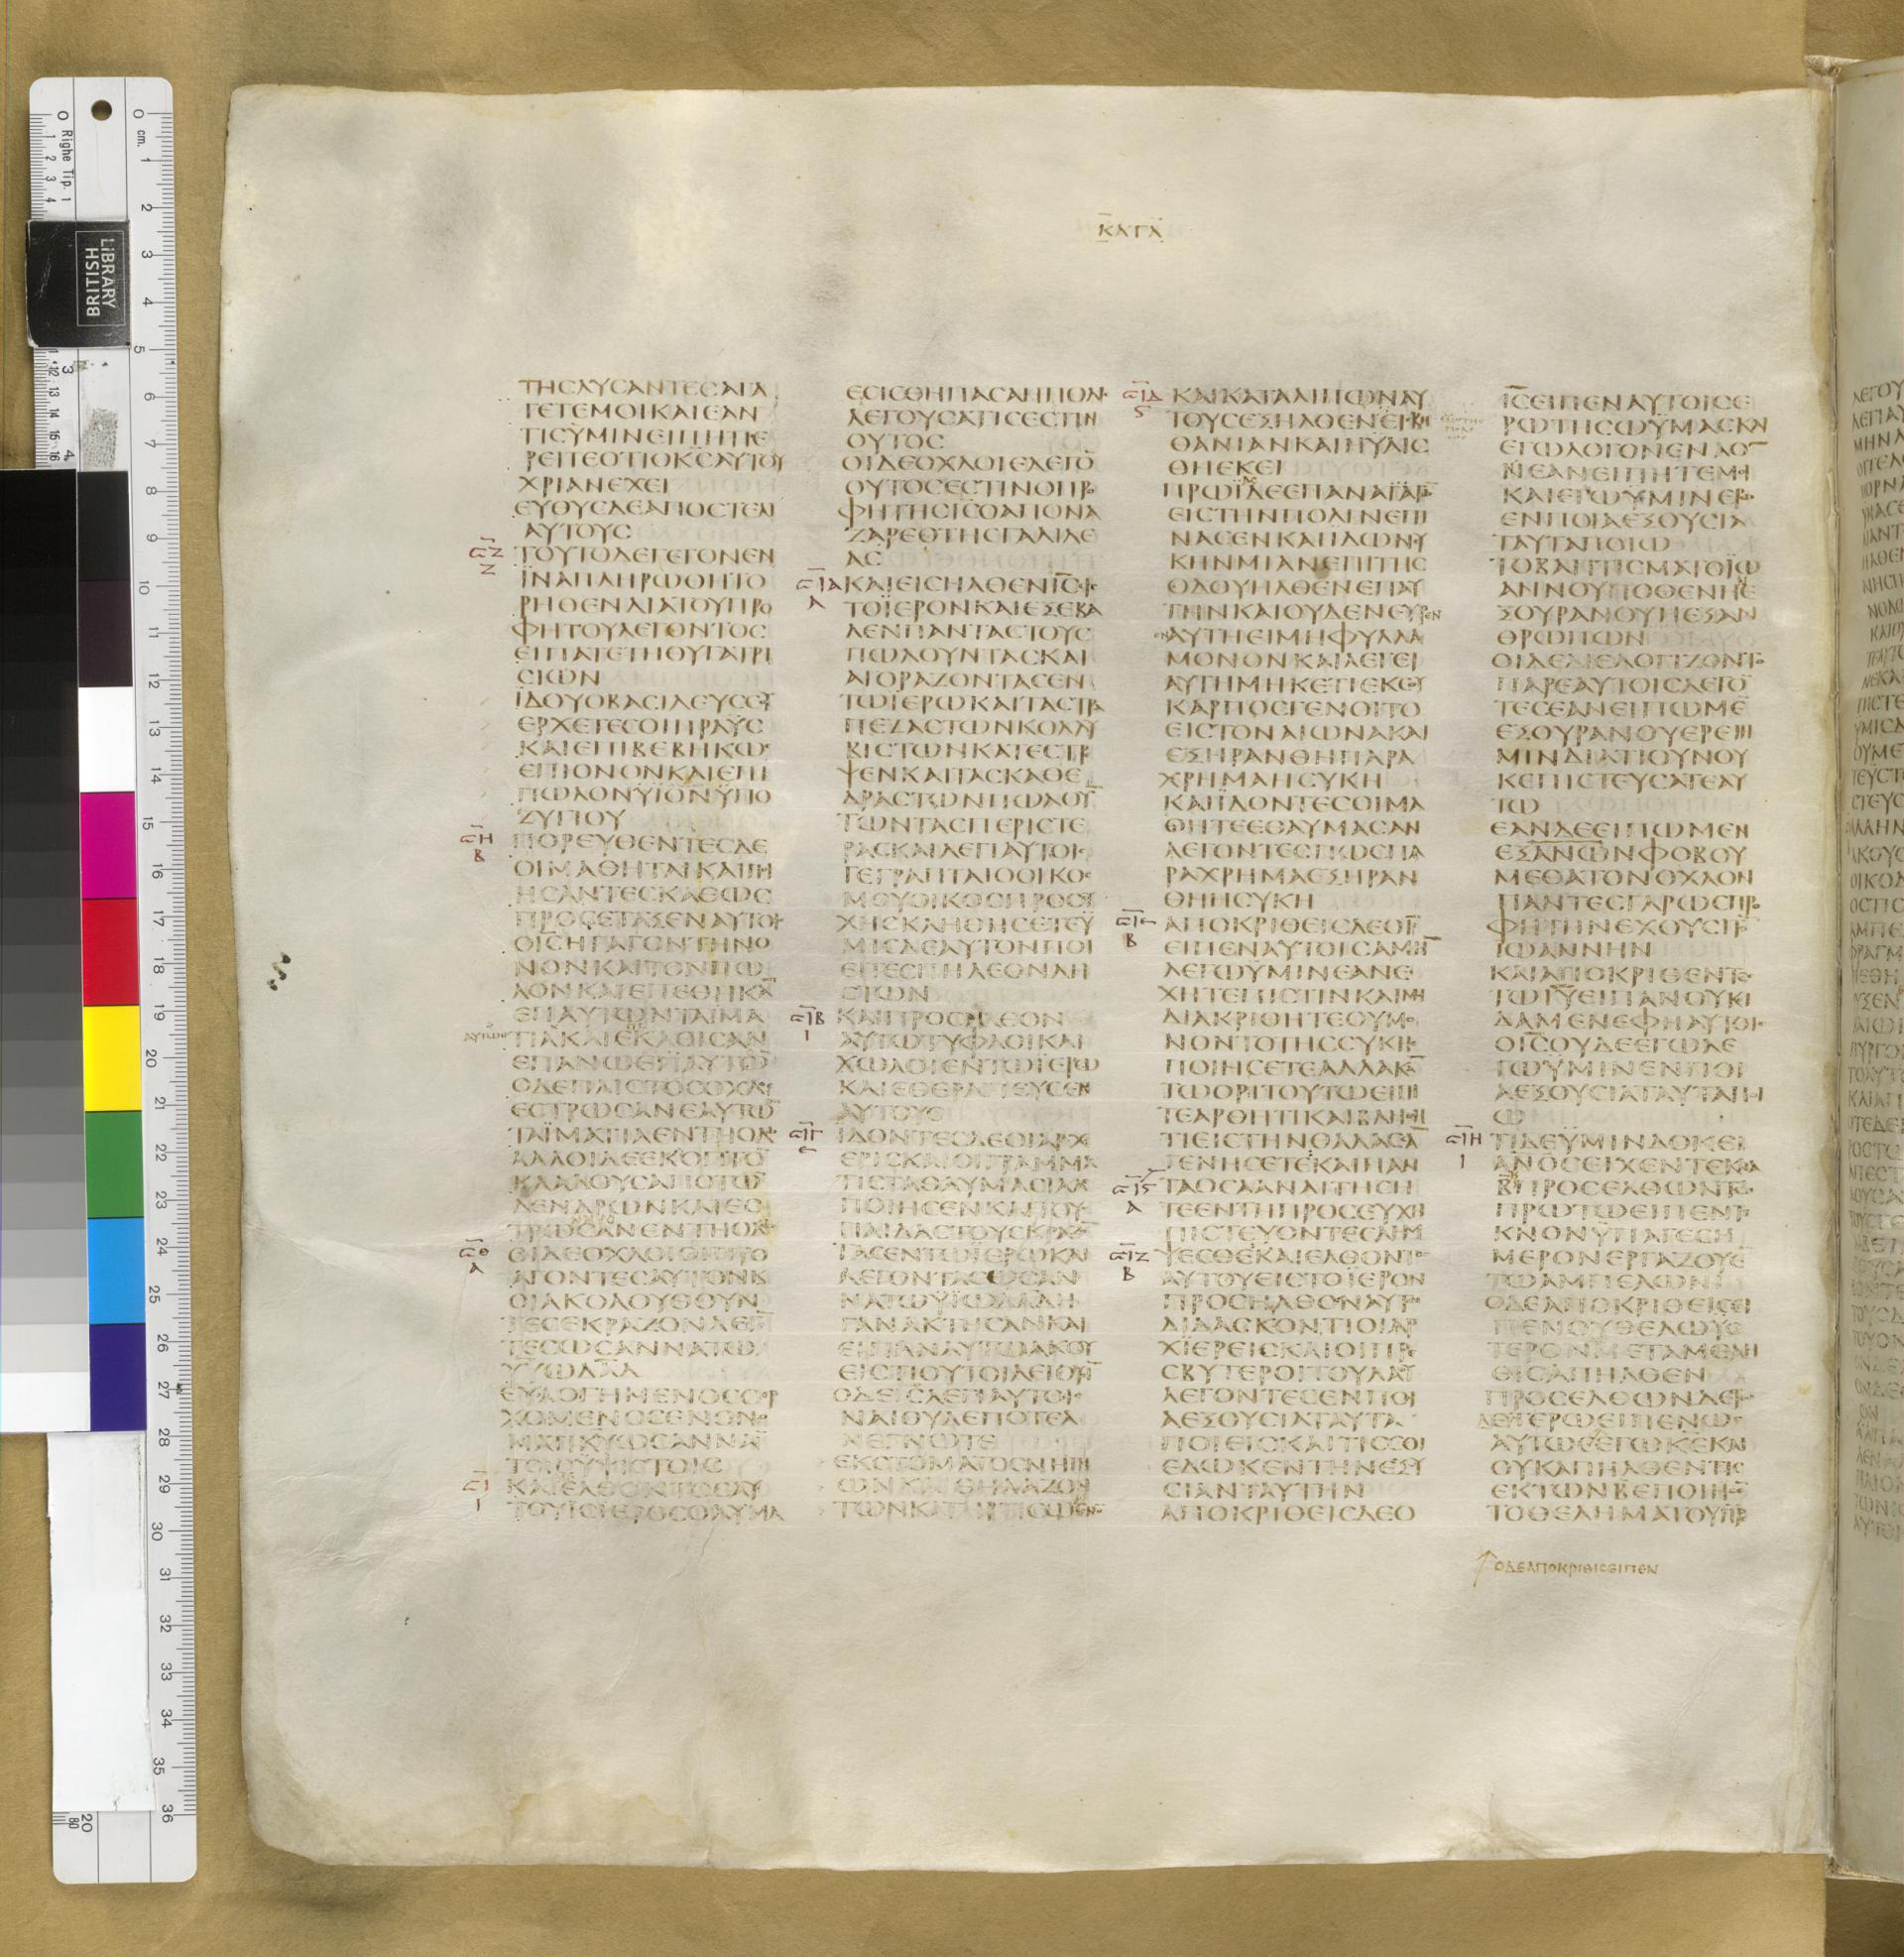 ΚΑΤΑ
ΤΗϹΛΥϹΑΝΤΕϹΑΓΑ
ΓΕΤΕΜΟΙΚΑΙΕΑΝ
ΤΙϹΫΜΙΝΕΙΠΗΤΙΕ
ΡΕΙΤΕΟΤΙΟΚ̅Ϲ̅ΑΥΤΟΥ
ΧΡΙΑΝΕΧΕΙ
ΕΥΘΥϹΔΕΑΠΟϹΤΕΛΙ
ΑΥΤΟΥϹ
ΤΟΥΤΟΔΕΓΕΓΟΝΕΝ
ΪΝΑΠΛΗΡΩΘΗΤΟ
ΡΗΘΕΝΔΙΑΤΟΥΠΡΟ
ΦΗΤΟΥΛΕΓΟΝΤΟϹ
ΕΙΠΑΤΕΤΗΘΥΓΑΤΡΙ
ϹΙΩΝ
ΪΔΟΥΟΒΑϹΙΛΕΥϹϹΟΥ
ΕΡΧΕΤΕϹΟΙΠΡΑΫϹ
ΚΑΙΕΠΙΒΕΒΗΚΩϹ
ΕΠΙΟΝΟΝΚΑΙΕΠΙ
ΠΩΛΟΝΫΪΟΝΫΠΟ
ΖΥΓΙΟΥ
ΠΟΡΕΥΘΕΝΤΕϹΔΕ
ΟΙΜΑΘΗΤΑΙΚΑΙΠΟΙ
ΗϹΑΝΤΕϹΚΑΘΩϹ
ΠΡΟϹΕΤΑΞΕΝΑΥΤΟΙϹ
ΟΙ̅Ϲ̅ΗΓΑΓΟΝΤΗΝΟ
ΝΟΝΚΑΙΤΟΝΠΩ
ΛΟΝΚΑΙΕΠΕΘΗΚΑ̅
ΕΠΑΥΤΩΝΤΑΪΜΑ
ΤΙΑΚΑΙΕΚΑΘΙϹΑΝ
ΕΠΑΝΩ
ΟΔΕΠΛΙϹΤΟϹΟΧΛΟϹ
ΕϹΤΡΩϹΑΝΕΑΥΤΩ̅
ΤΑΪΜΑΤΙΑΕΝΤΗΟΔΩ
ΑΛΛΟΙΔΕΕΚΟΠΤΟ̅
ΚΛΑΔΟΥϹΑΠΟΤΩ̅
ΔΕΝΔΡΩΝΚΑΙΕϹ
ΤΡΩϹΑΝΕΝΤΗΟΔΩ
ΟΙΔΕΟΧΛΟΙΟΙΠΡΟ
ΑΓΟΝΤΕϹΑΥΤΟΝΚ
ΟΙΑΚΟΛΟΥΘΟΥΝ
ΤΕϹΕΚΡΑΖΟΝΛΕΓΟ̅
ΤΕϹΩϹΑΝΝΑΤΩ
ΥΪΩΔΑ̅Δ̅
ΕΥΛΟΓΗΜΕΝΟϹΟΕΡ
ΧΟΜΕΝΟϹΕΝΟΝΟ
ΜΑΤΙΚ̅Υ̅ΩϹΑΝΝΑ
ΤΟΙϹΫΨΙϹΤΟΙϹ
ΚΑΙΕΛΘΟΝΤΟϹΑΥ
ΤΟΥΕΙϹΪΕΡΟϹΟΛΥΜΑ
ΕϹΙϹΘΗΠΑϹΑΗΠΟΛΙϹ
ΛΕΓΟΥϹΑΤΙϹΕϹΤΙΝ
ΟΥΤΟϹ
ΟΙΔΕΟΧΛΟΙΕΛΕΓΟ̅
ΟΥΤΟϹΕϹΤΙΝΟΠΡΟ
ΦΗΤΗϹΙ̅Ϲ̅ΟΑΠΟΝΑ
ΖΑΡΕΘΤΗϹΓΑΛΙΛΕ
ΑϹ
ΚΑΙΕΙϹΗΛΘΕΝΙ̅Ϲ̅ΕΙϹ
ΤΟΪΕΡΟΝΚΑΙΕΞΕΒΑ
ΛΕΝΠΑΝΤΑϹΤΟΥϹ
ΠΩΛΟΥΝΤΑϹΚΑΙ
ΑΓΟΡΑΖΟΝΤΑϹΕΝ
ΤΩΪΕΡΩΚΑΙΤΑϹΤΡΑ
ΠΕΖΑϹΤΩΝΚΟΛΛΥ
ΒΙϹΤΩΝΚΑΤΕϹΤΡΕ
ΨΕΝΚΑΙΤΑϹΚΑΘΕ
ΔΡΑϹΤΩΝΠΩΛΟΥ̅
ΤΩΝΤΑϹΠΕΡΙϹΤΕ
ΡΑϹΚΑΙΛΕΓΙΑΥΤΟΙϹ
ΓΕΓΡΑΠΤΑΙΟΟΙΚΟϹ
ΜΟΥΟΙΚΟϹΠΡΟϹΕΥ
ΧΗϹΚΛΗΘΗϹΕΤΕΫ
ΜΙϹΔΕΑΥΤΟΝΠΟΙ
ΕΙΤΕϹΠΗΛΕΟΝΛΗ
ϹΤΩΝ
ΚΑΙΠΡΟϹΗΛΘΟΝ
ΑΥΤΩΤΥΦΛΟΙΚΑΙ
ΧΩΛΟΙΕΝΤΩΪΕΡΩ
ΚΑΙΕΘΕΡΑΠΕΥϹΕΝ
ΑΥΤΟΥϹ
ΙΔΟΝΤΕϹΔΕΟΙΑΡΧΙ
ΕΡΙϹΚΑΙΟΙΓΡΑΜΜΑ
ΤΙϹΤΑΘΑΥΜΑϹΙΑΑ
ΠΟΙΗϹΕΝΚΑΙΤΟΥϹ
ΠΑΙΔΑϹΤΟΥϹΚΡΑΖΟ̅
ΤΑϹΕΝΤΩΪΕΡΩΚΑΙ
ΛΕΓΟΝΤΑϹΩϹΑΝ
ΝΑΤΩΫΪΩΔΑ̅Δ̅Η
ΓΑΝΑΚΤΗϹΑΝΚΑΙ
ΕΙΠΑΝΑΥΤΩΑΚΟΥ
ΕΙϹΤΙΟΥΤΟΙΛΕΓΟΥϹΙ̅
ΟΔΕΙ̅Ϲ̅ΛΕΓΙΑΥΤΟΙϹ
ΝΑΙΟΥΔΕΠΟΤΕΑ
ΝΕΓΝΩΤΕ
ΕΚϹΤΟΜΑΤΟϹΝΗΠΙ
ΩΝΚΑΙΘΗΛΑΖΟΝ
ΤΩΝΚΑΤΗΡΤΙϹΩΕΝΟ̅
ΚΑΙΚΑΤΑΛΙΠΩΝΑΥ
ΤΟΥϹΕΞΗΛΘΕΝΕΙϹΒΗ
ΘΑΝΙΑΝΚΑΙΗΥΛΙϹ
ΘΗΕΚΕΙ
ΠΡΩΪΔΕΕΠΑΝΑΓΑΓΩ̅
ΕΙϹΤΗΝΠΟΛΙΝΕΠΙ
ΝΑϹΕΝΚΑΙΪΔΩΝϹΥ
ΚΗΝΜΙΑΝΕΠΙΤΗϹ
ΟΔΟΥΗΛΘΕΝΕΠΑΥ
ΤΗΝΚΑΙΟΥΔΕΝΕΥΡΕΝ
ΕΝΑΥΤΗΕΙΜΗΦΥΛΛΑ
ΜΟΝΟΝΚΑΙΛΕΓΕΙ
ΑΥΤΗΜΗΚΕΤΙΕΚϹΟΥ
ΚΑΡΠΟϹΓΕΝΟΙΤΟ
ΕΙϹΤΟΝΑΙΩΝΑΚΑΙ
ΕΞΗΡΑΝΘΗΠΑΡΑ
ΧΡΗΜΑΗϹΥΚΗ
ΚΑΙΪΔΟΝΤΕϹΟΙΜΑ
ΘΗΤΕΕΘΑΥΜΑϹΑΝ
ΛΕΓΟΝΤΕϹΠΩϹΠΑ
ΡΑΧΡΗΜΑΕΞΗΡΑΝ
ΘΗΗϹΥΚΗ
ΑΠΟΚΡΙΘΕΙϹΔΕΟΙ̅Ϲ̅
ΕΙΠΕΝΑΥΤΟΙϹΑΜΗ̅
ΛΕΓΩΫΜΙΝΕΑΝΕ
ΧΗΤΕΠΙϹΤΙΝΚΑΙΜΗ
ΔΙΑΚΡΙΘΗΤΕΟΥΜΟ
ΝΟΝΤΟΤΗϹϹΥΚΗϹ
ΠΟΙΗϹΕΤΕΑΛΛΑΚΑ̅
ΤΩΟΡΙΤΟΥΤΩΕΙΠΗ
ΤΕΑΡΘΗΤΙΚΑΙΒΛΗΘΗ
ΤΙΕΙϹΤΗΝΘΑΛΑϹϹΑ̅
ΓΕΝΗϹΕΤΕΚΑΙΠΑΝ
ΤΑΟϹΑΑΝΑΙΤΗϹΗ
ΤΕΕΝΤΗΠΡΟϹΕΥΧΗ
ΠΙϹΤΕΥΟΝΤΕϹΛΗΜ
ΨΕϹΘΕΚΑΙΕΛΘΟΝΤΟϹ
ΑΥΤΟΥΕΙϹΤΟΪΕΡΟΝ
ΠΡΟϹΗΛΘΟΝΑΥΤΩ
ΔΙΔΑϹΚΟΝΤΙΟΙΑΡ
ΧΙΕΡΕΙϹΚΑΙΟΙΠΡΕ
ϹΒΥΤΕΡΟΙΤΟΥΛΑΟΥ
ΛΕΓΟΝΤΕϹΕΝΠΟΙ
ΑΕΞΟΥϹΙΑΤΑΥΤΑ
ΠΟΙΕΙϹΚΑΙΤΙϹϹΟΙ
ΕΔΩΚΕΝΤΗΝΕΞΟΥ
ϹΙΑΝΤΑΥΤΗΝ
ΑΠΟΚΡΙΘΕΙϹΔΕΟ
Ι̅Ϲ̅ΕΙΠΕΝΑΥΤΟΙϹΕ
ΡΩΤΗϹΩΫΜΑϹΚΑΙ
ΕΓΩΛΟΓΟΝΕΝΑΟ̅
ΕΑΝΕΙΠΗΤΕΜΟΙ
ΚΑΙΕΓΩΫΜΙΝΕΡΩ
ΕΝΠΟΙΑΕΞΟΥϹΙΑ
ΤΑΥΤΑΠΟΙΩ
ΤΟΒΑΠΤΙϹΜΑΤΟΪΩ
ΑΝΝΟΥΠΟΘΕΝΗΝΕ
ΞΟΥΡΑΝΟΥΗΕΞΑΝ
ΘΡΩΠΩΝ
ΟΙΔΕΔΙΕΛΟΓΙΖΟΝΤΟ
ΠΑΡΕΑΥΤΟΙϹΛΕΓΟ̅
ΤΕϹΕΑΝΕΙΠΩΜΕ̅
ΕΞΟΥΡΑΝΟΥΕΡΕΙΗ
ΜΙΝΔΙΑΤΙΟΥΝΟΥ
ΚΕΠΙϹΤΕΥϹΑΤΕΑΥ
ΤΩ
ΕΑΝΔΕΕΙΠΩΜΕΝ
ΕΞΑ̅Ν̅Ω̅Ν̅ΦΟΒΟΥ
ΜΕΘΑΤΟΝΟΧΛΟΝ
ΠΑΝΤΕϹΓΑΡΩϹΠΡΟ
ΦΗΤΗΝΕΧΟΥϹΙΝ
ΙΩΑΝΝΗΝ
ΚΑΙΑΠΟΚΡΙΘΕΝΤΕϹ
ΤΩΙ̅Υ̅ΕΙΠΑΝΟΥΚΟΙ
ΔΑΜΕΝΕΦΗΑΥΤΟΙϹ
ΟΙ̅Ϲ̅ΟΥΔΕΕΓΩΛΕ
ΓΩΫΜΙΝΕΝΠΟΙ
ΑΕΞΟΥϹΙΑΤΑΥΤΑΠΟΙ
Ω
ΤΙΔΕΫΜΙΝΔΟΚΕΙ
Α̅Ν̅Ο̅Ϲ̅ΕΙΧΕΝΤΕΚΝΑ
Β̅ΠΡΟϹΕΛΘΩΝΤΩ
ΠΡΩΤΩΕΙΠΕΝΤΕ
ΚΝΟΝΫΠΑΓΕϹΗ
ΜΕΡΟΝΕΡΓΑΖΟΥΕ̅
ΤΩΑΜΠΕΛΩΝΙ
ΟΔΕΑΠΟΚΡΙΘΕΙϹΕΙ
ΠΕΝΟΥΘΕΛΩΫϹ
ΤΕΡΟΝΜΕΤΑΜΕΛΗ
ΘΙϹΑΠΗΛΘΕΝ
ΠΡΟϹΕΛΘΩΝΔΕΤΩ
ΕΤΕΡΩΕΙΠΕΝΩϹ
ΑΥΤΩϹΕΓΩΚ̅Ε̅ΚΑΙ
ΟΥΚΑΠΗΛΘΕΝΤΙϹ
ΕΚΤΩΝΒΕΠΟΙΗϹΕ̅
ΤΟΘΕΛΗΜΑΤΟΥΠ̅Ρ̅Ϲ̅
ΟΔΕΑΠΟΚΡΙΘΙϹΕΙΠΕΝ
LIBRARY
BRITISH